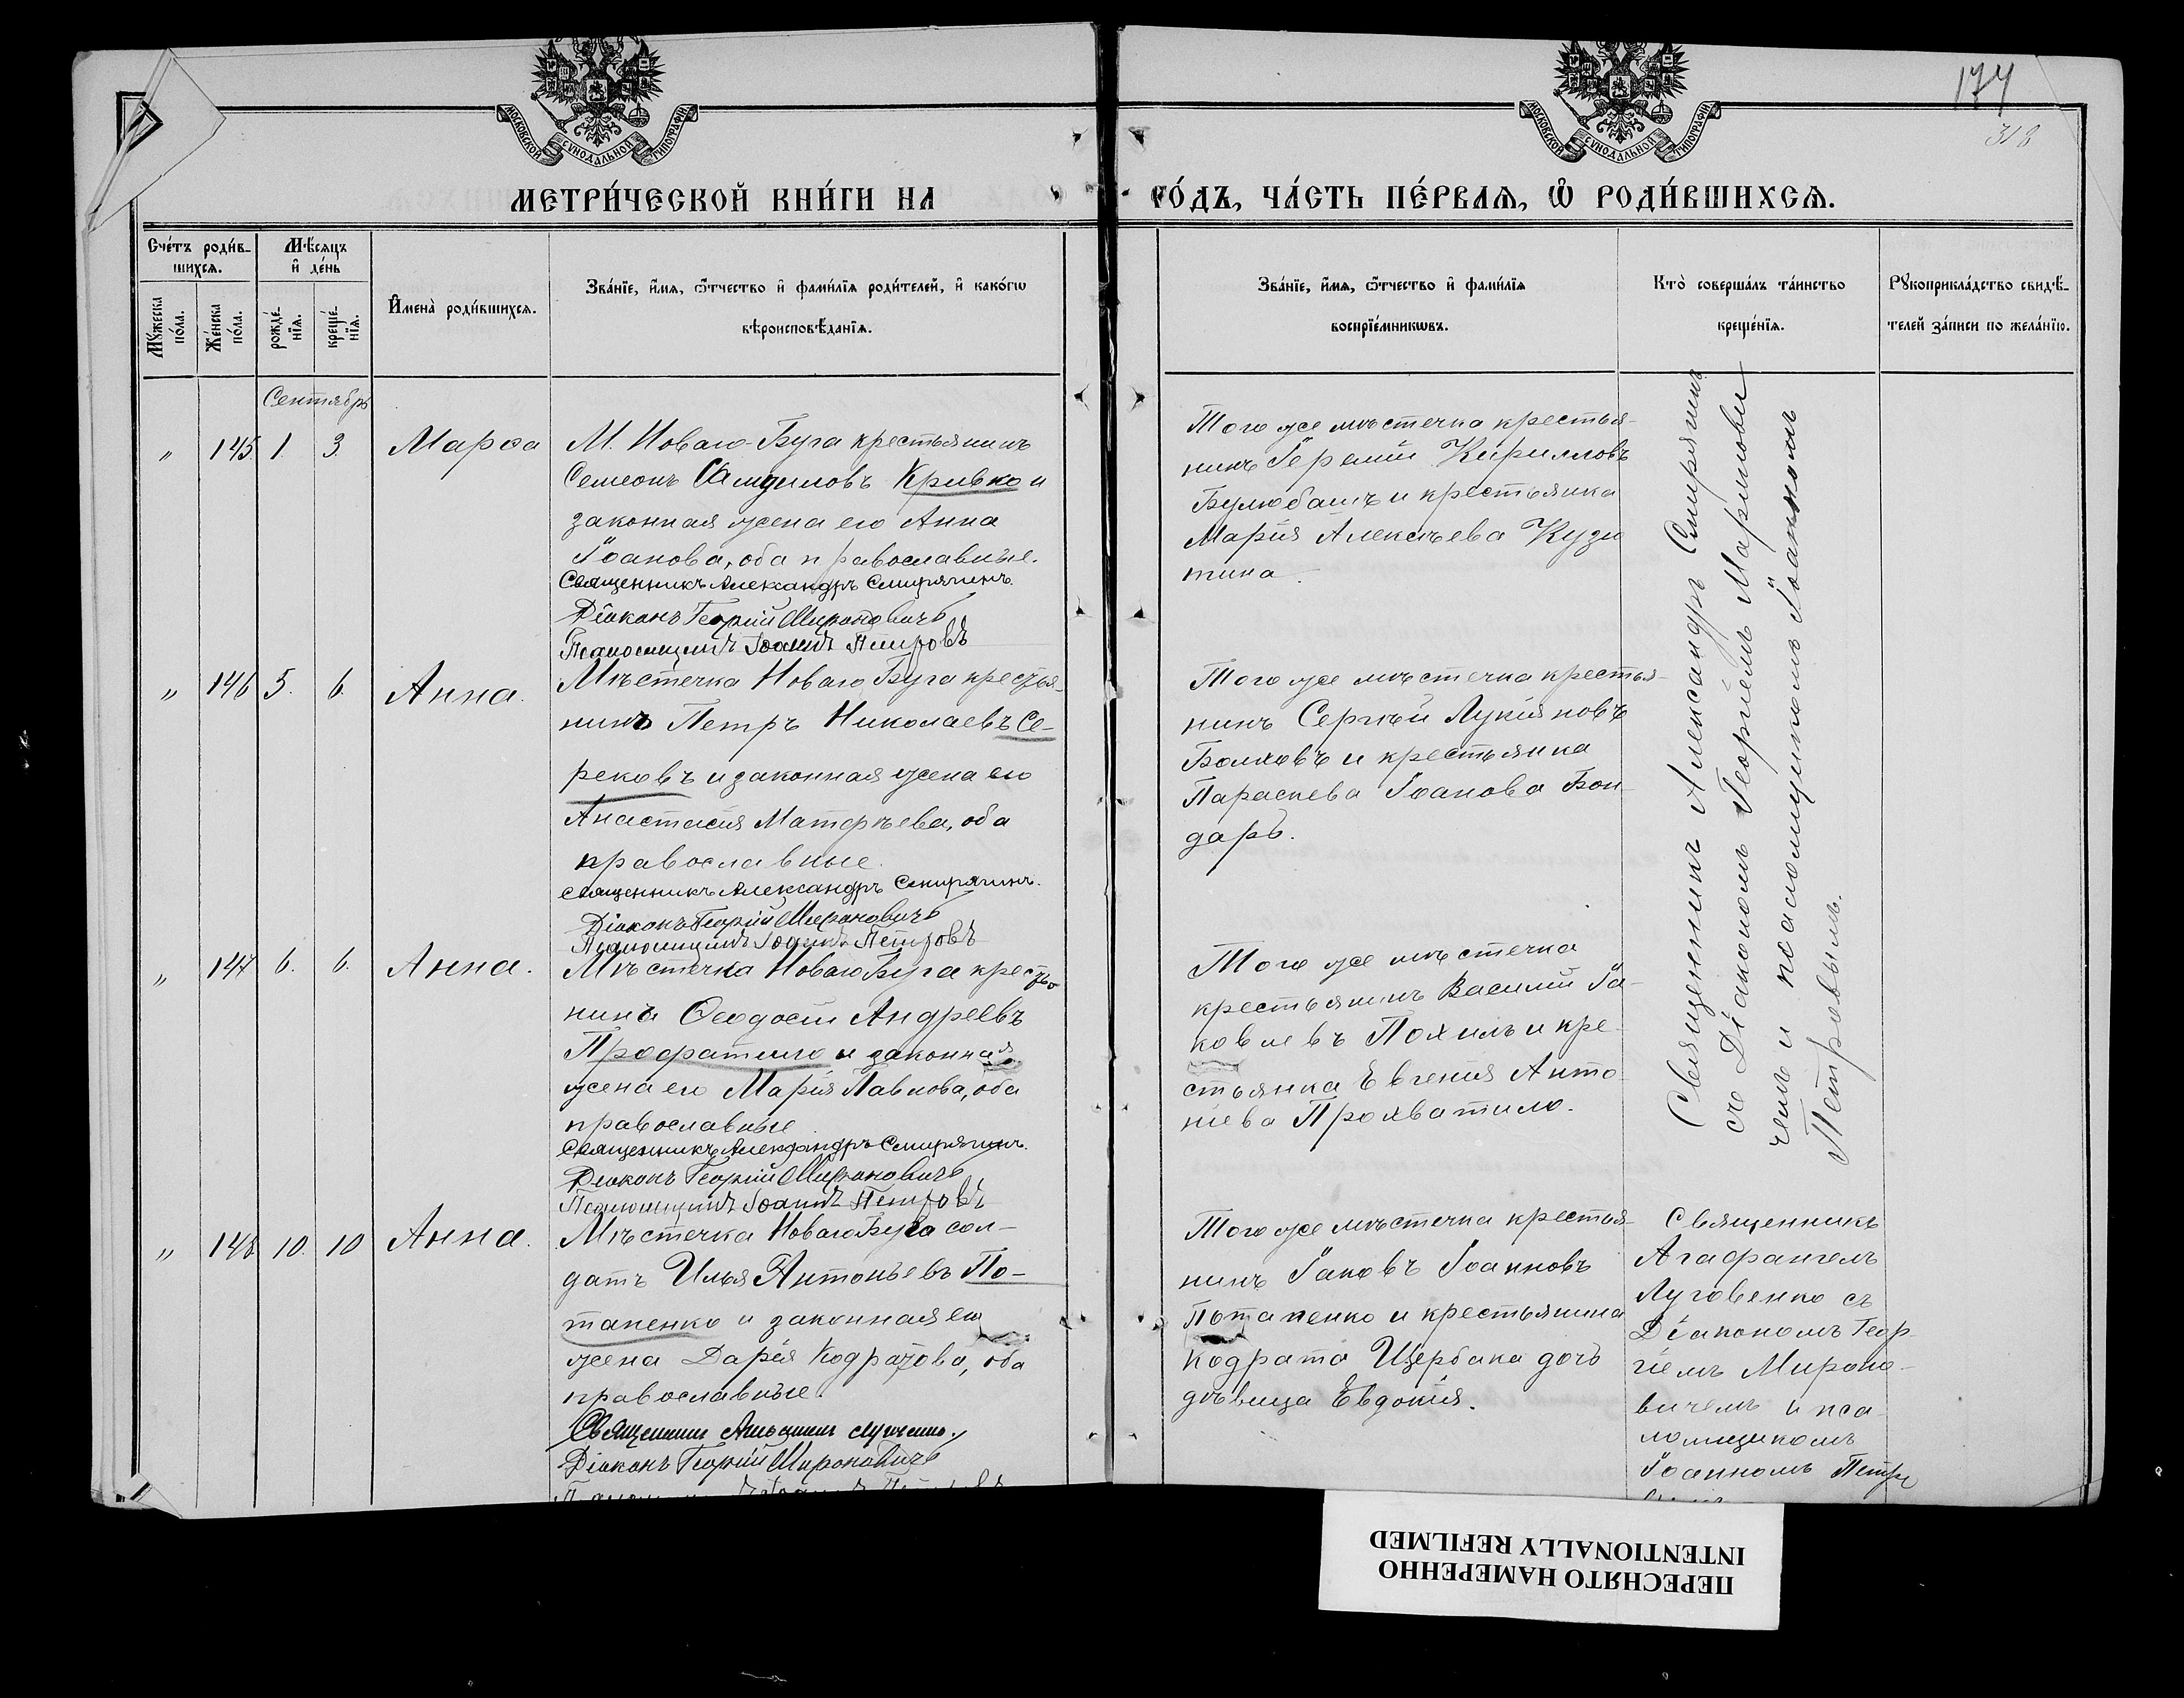 174
318
МОСКОВСКОЙ СѴНОДАЛЬНОЙ ТИПОГРАФІИ
МОСКОВСКОЙ СѴНОДАЛЬНОЙ ТИПОГРАФІИ
МЕТРИ́ЧЕСКОЙ КНИ́ГИ НА
ГО́ДЪ, ЧА́СТЬ ПЕ́РВАѦ, Ѡ РОДИ́ВШИХСѦ.
Сче́тъ роди́в-
шихсѧ.
Мꙋ́жеска по́ла.
Же́нска по́ла.
Мѣ́сѧцъ
и҆ де́нь
рожде́-
нїѧ.
креще́-
нїѧ.
И҆мена̀ роди́вшихсѧ.
Зва́нїе, и҆́мѧ, ѻ҆́тчество и҆ фами́лїѧ роди́телей, и҆ како́гѡ
вѣроисповѣ́данїѧ.
Зва́нїе, и҆́мѧ, ѻ҆́тчество и҆ фами́лїѧ
воспрїе́мникѡвъ.
Кто̀ соверша́лъ та́инство
креще́нїѧ.
Рꙋкоприкла́дство свидѣ́-
телей за́писи по жела́нїю.
Сентябрь
" 145. 1. 3. Марѳа
М. Новаго-Буга крестьянинъ
Семеонъ Самуиловъ Кривко и
законная жена его Анна
Іоанова, оба православные.
Священникъ Александръ Смирягинъ.
Діаконъ Георгій Мироновичъ
Псаломщикъ Іоаннъ Петровъ
Того же мѣстечка крестья-
нинъ Іеремій Кирилловъ
Булюбашъ и крестьянка
Марія Алексѣева Кузю
тина.
" 146 5. 6. Анна.
Мѣстечка Новаго Буга крестья-
нинъ Петръ Николаевъ Се-
рековъ и законная жена его
Анастасія Матфѣева, оба
православные.
Священникъ Александръ Смирягинъ.
Діаконъ Георгій Мироновичъ
Псаломщикъ Іоаннъ Петровъ
Того же мѣстечка крестья-
нинъ Сергѣй Лукіяновъ
Волковъ и крестьянка
Параскева Іоанова Бон-
дарь.
" 147 6. 6. Анна.
Мѣстечка Новаго Буга крестья
нинъ Ѳеодосій Андреевъ
Профатило и законная
жена его Марія Павлова, оба
православные
Священникъ Александръ Смирягинъ.
Діаконъ Георгій Мироновичъ
Псаломщикъ Іоаннъ Петровъ
Того же мѣстечка
крестьянинъ Василій Іа-
ковлевъ Похилъ и кре-
стьянка Евгенія Анто-
ніева Прохватило.
Священникъ Александръ Смирягинъ
съ Діакономъ Георгіемъ Миронови
чемъ и псаломщикомъ Іоанномъ
Петровымъ.
" 148. 10. 10 Анна.
Мѣстечка Новаго Буга сол-
датъ Илья Антоньевъ По-
тапенко и законная его
жена Дарія Кодратова, оба
православные.
Діаконъ Георгій Мироновичъ
Того же мѣстечка крестья-
нинъ Іаковъ Іоанновъ
Потапенко и крестьянина
Кодрата Щербака дочь
дѣвица Евдокія.
Священникъ
Агафангелъ
Луговенко съ
Діакономъ Геор-
гіемъ Мироно-
вичемъ и пса-
ломщикомъ
Іоанномъ Петро
ПЕРЕСНЯТО НАМЕРЕННО
INTENTIONALLY REFILMED